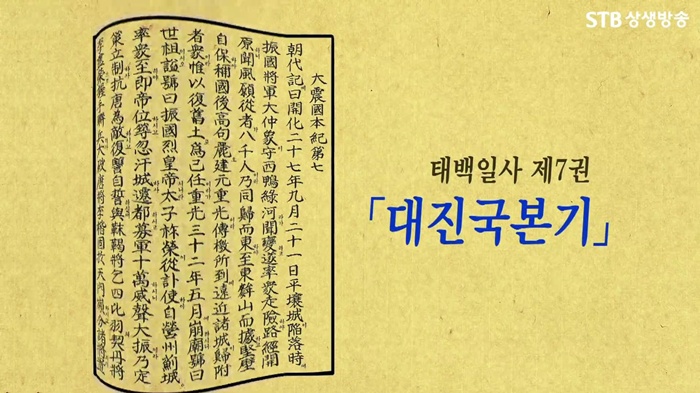 STB 상생방송
大震國本紀第七
朝代記曰開化二十七年九月二十一日平壤城陷落時
振國將軍大仲象守西鴨綠河聞變遂率衆走險路經開
原聞風願從者八千人乃同歸而東至東牟山而據堅壁
自保稱國後高句麗建元重光傳檄所到遠近諸城歸附
者衆惟以復舊土爲己任重光三十二年五月崩廟號曰
世祖諡號曰振國烈皇帝太子祚榮從訃使自營州薊城
率衆至即帝位築忽汗城遷都募軍十萬威聲大振乃定
策立制抗唐爲敵復讐自誓與靺鞨將乞四比羽契丹將
李盡榮握手聯兵大破唐將李楷固於天門嶺分諸將
태백일사 제7권
「대진국본기」